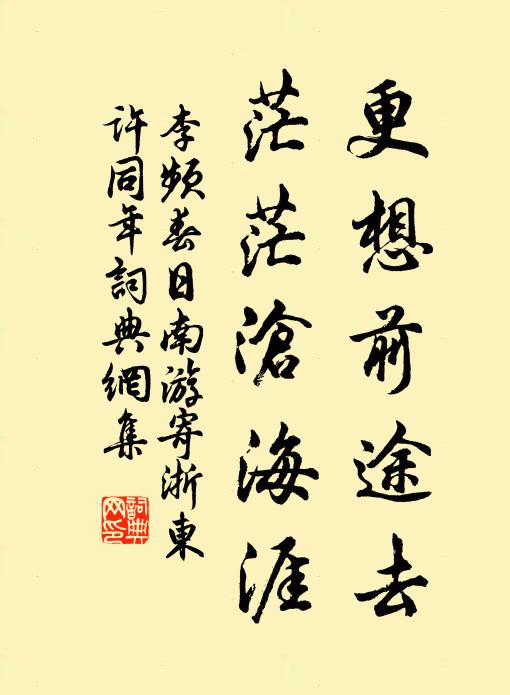 更想前途去
茫茫滄海涯
李頻春日南游寄浙東
許同年詞典網集
詞典網印